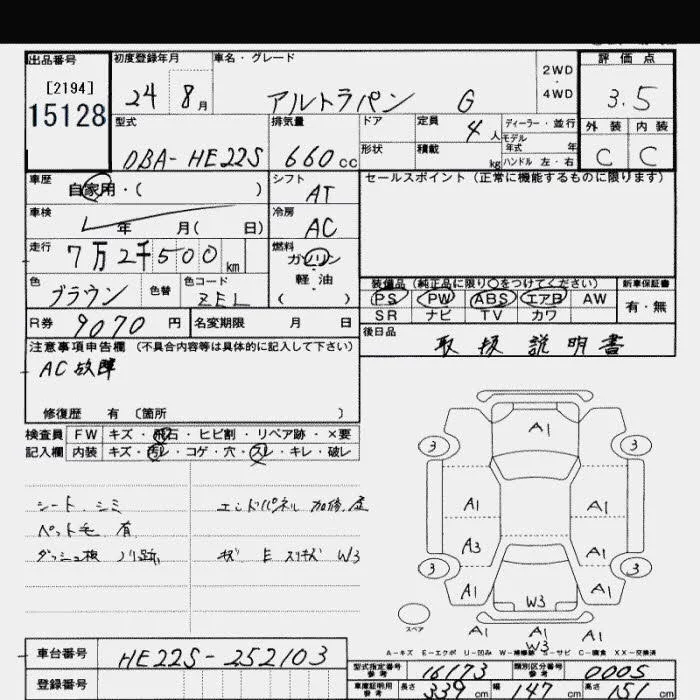 出品番号 初度登録年月 車名・グレード 2WD・4WD 評価点
[2194] 15128 24 8月 アルトラパン G 3.5
型式 排気量 ドア 定員 ディーラー・並行 外装 内装
DBA-HE22S 660cc 形状 積載 4人 kg モデル年式 年 ハンドル 左・右 C C
車歴 自家用・( ) シフト AT セールスポイント(正常に機能するものに限ります)
車検 年 月( 日) 冷房 AC
走行 7万2千500km 燃料 ガソリン 軽油 ( )
色 ブラウン 色替 色コード ZEL
装備品(純正品に限り〇をつけてください) 新車保証書
PS PW ABS エアB AW 有・無
SR ナビ TV カワ
R券 9070円 名変期限 月 日 後日品 取扱説明書
注意事項申告欄(不具合内容等は具体的に記入して下さい)
AC故障
修復歴 有 〔箇所 〕
検査員 FW キズ・飛石・ヒビ割・リペア跡・×要
記入欄 内装 キズ・汚レ・コゲ・穴・スレ・キレ・破レ
シート.シミ エンドパネル 加修.歪
ペット毛 有
ダッシュ板 ノリ跡 E スリキズ W3
A1
3 3
A1 A1
A3 A1
3 3
A1 A1
W3
スペア A1 A1
W3
A-キズ E-エクボ U-凹み W-補修跡 S-サビ C-腐食 XX-交換済
車台番号 HE22S-252103 型式指定番号 参考 16173 類別区分番号 参考 0005
登録番号 車庫証明用 参考 長さ 339cm 幅 147cm 高さ 151cm